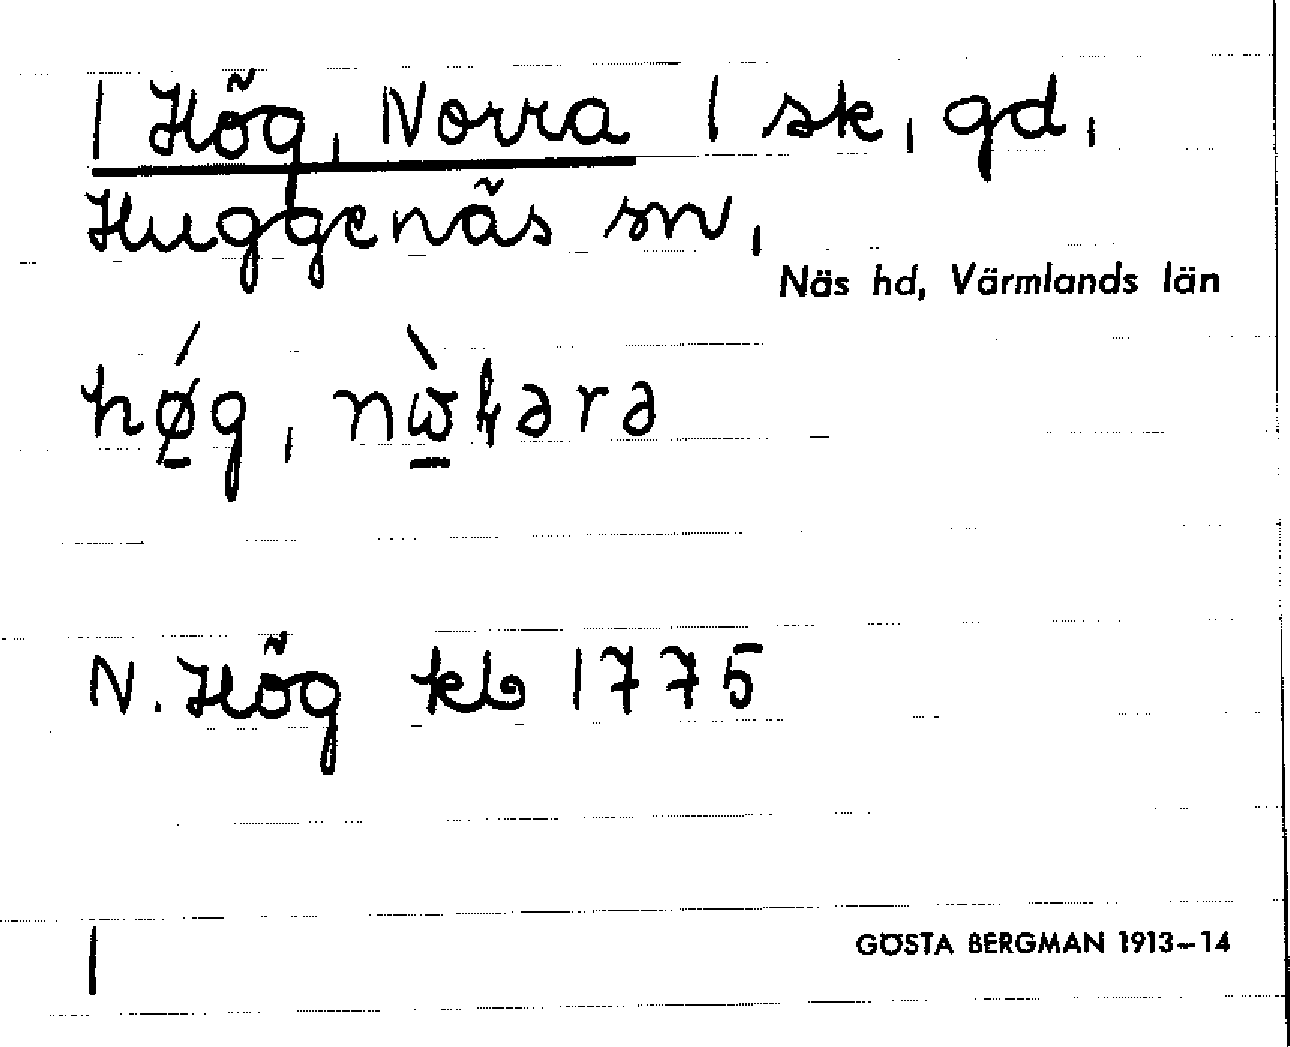 | Hög, Norra | sk, gd,
Huggenäs sn,
Näs hd, Värmlands län
N. Hög kb 1775
GÖSTA BERGMAN 1913–14